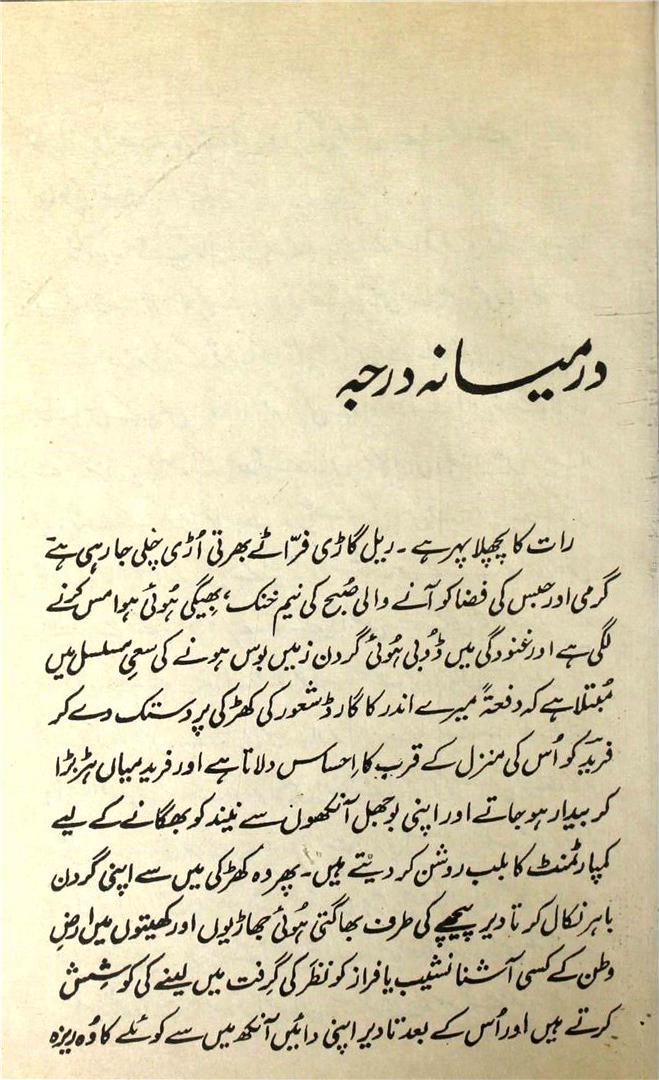 درمیانہ درجہ
رات کا پچھلا پہر ہے ۔ ریل گاڑی فرّاٹے بھرتی اُڑی چلی جا رہی ہے
گرمی اور حبس کی فضا کو آنے والی صُبح کی نیم خنک ، بھیگی ہُوئی ہوا مس کرنے
لگی ہے اور غنودگی میں ڈُوبی ہُوئی گردن زمیں بوس ہونے کی سعیِ مسلسل میں
مُبتلا ہے کہ دفعۃً میرے اندر کا گارڈ شعور کی کھڑکی پر دستک دے کر
فرید کو اُس کی منزل کے قرب کا احساس دلاتا ہے اور فرید میاں ہڑبڑا
کر بیدار ہو جاتے اور اپنی بوجھل آنکھوں سے نیند کو بھگانے کے لیے
کمپارٹمنٹ کا بلب روشن کر دیتے ہیں ۔ پھر وہ کھڑکی میں سے اپنی گردن
باہر نکال کر تا دیر پیچھے کی طرف بھاگتی ہُوئی جھاڑیوں اور کھیتوں میں ارضِ
وطن کے کسی آشنا نشیب یا فراز کو نظر کی گرفت میں لینے کی کوشش
کرتے ہیں اور اُس کے بعد تا دیر اپنی دائیں آنکھ میں سے کوئلے کا وُہ ریزہ